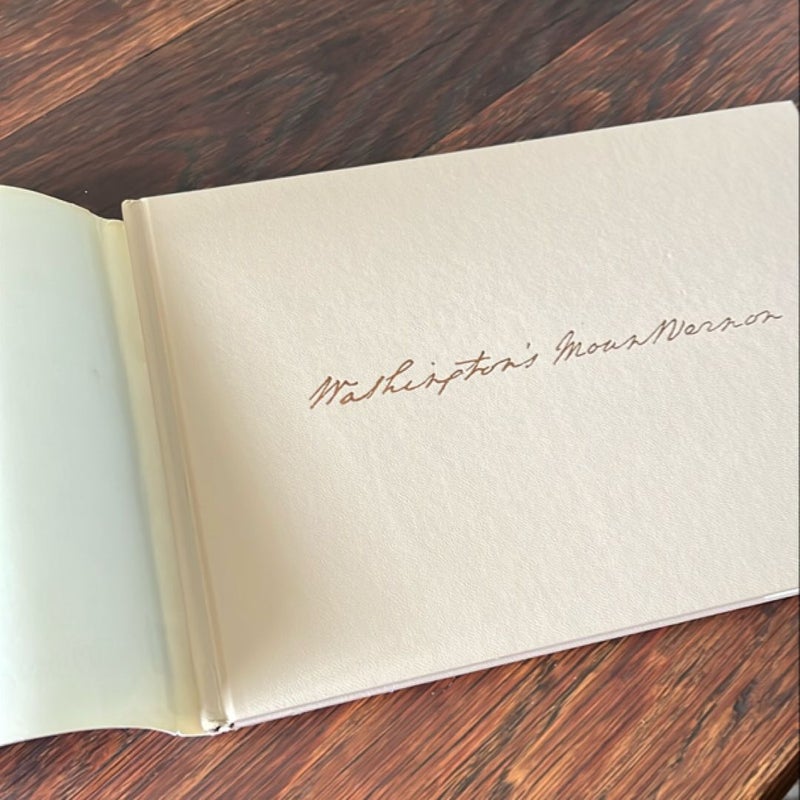 Washington's Mount Vernon